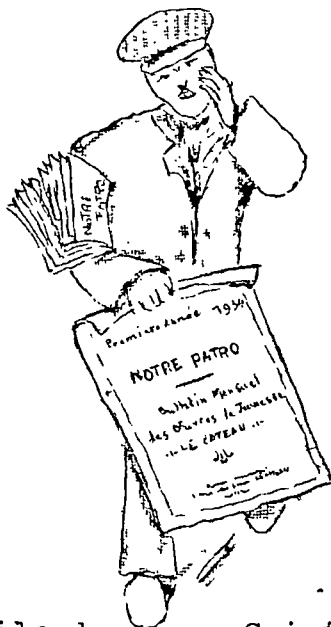 NOTRE
PATRO
Première Année 1934
NOTRE PATRO
Bulletin Mensuel
des Œuvres de Jeunesse
LE COTEAU